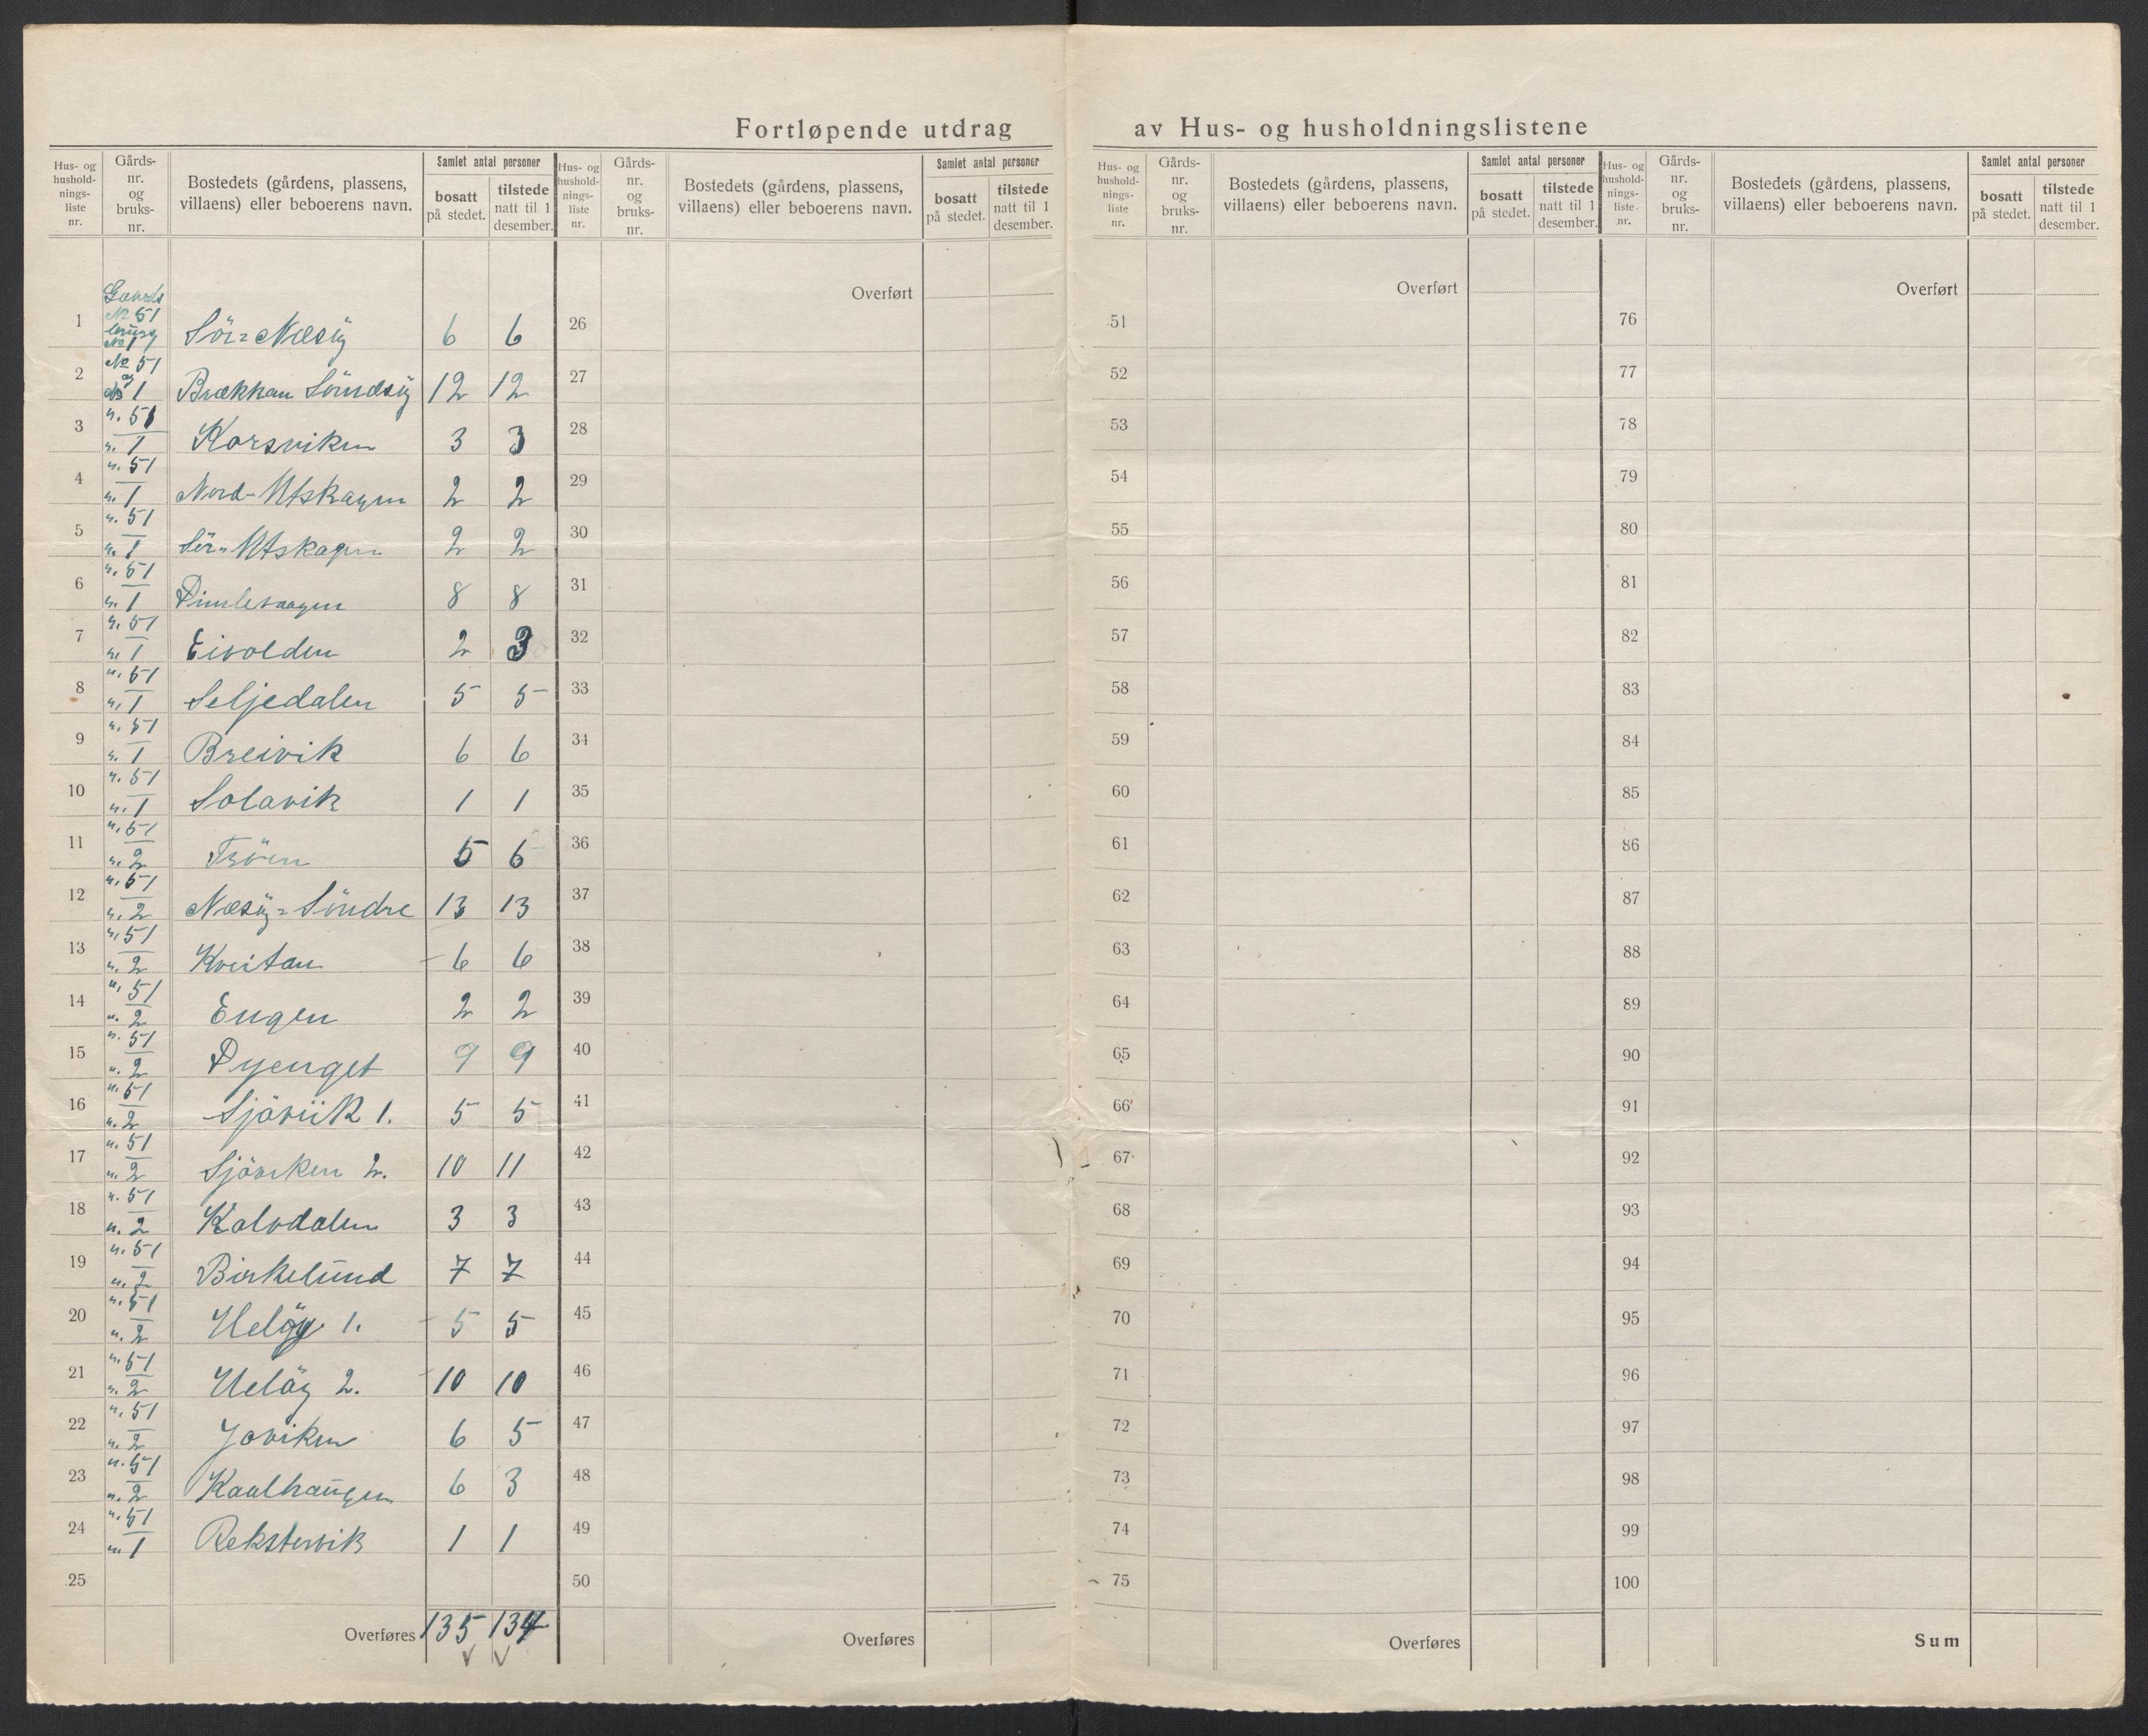 Fortløpende utdrag av Hus- og husholdningslistene
Hus- og hushold- nings- liste nr. | Gårds- nr. og bruks- nr. | Bostedets (gårdens, plassens, villaens) eller beboerens navn. | Samlet antal personer | bosatt på stedet. | tilstede natt til 1 desember.
Hus- og hushold- nings- liste nr. | Gårds- nr. og bruks- nr. | Bostedets (gårdens, plassens, villaens) eller beboerens navn. | Samlet antal personer | bosatt på stedet. | tilstede natt til 1 desember.
Hus- og hushold- nings- liste nr. | Gårds- nr. og bruks- nr. | Bostedets (gårdens, plassens, villaens) eller beboerens navn. | Samlet antal personer | bosatt på stedet. | tilstede natt til 1 desember.
Hus- og hushold- nings- liste nr. | Gårds- nr. og bruks- nr. | Bostedets (gårdens, plassens, villaens) eller beboerens navn. | Samlet antal personer | bosatt på stedet. | tilstede natt til 1 desember.
1 Gaards № 51 brugs № 1 Sör= Næsöy 6 6
2 № 51 og № 1 Brækkan 12 12
3 n. 51 n. 1 Korsviken 3 3
4 n. 51 n. 1 Nord-Utskagen 2 2
5 n. 51 n. 1 Sör-Utskagen 2 2
6 n. 51 n. 1 8 8
7 n. 51 n. 1 Eivolden 2 3
8 n. 51 n. 1 Seljedalen 5 5
9 n. 51 n. 1 Breivik 6 6
10 n. 51 n. 1 Solavik 1 1
11 n. 51 n. 2 Tröen 5 6
12 n. 51 n. 2 Næsöy= Söndre 13 13
13 n. 51 n. 2 Kveitan 6 6
14 n. 51 n. 2 Engen 2 2
15 n. 51 n. 2 Dyenget 9 9
16 n. 51 n. 2 Sjöviik 1. 5 5
17 n. 51 n. 2 Sjöviken 2. 10 11
18 n. 51 n. 2 Kalvdalen 3 3
19 n. 51 n. 2 Birkelund 7 7
20 n. 51 n. 2 Helöy 1. 5 5
21 n. 51 n. 2 Helöy 2. 10 10
22 n. 51 n. 2 Joviken 6 5
23 n. 51 n. 2 Kaalhaugen 6 3
24 n. 51 n. 1 Rekstervik 1 1
25
Overføres 135 134
Overført
26
27
28
29
30
31
32
33
34
35
36
37
38
39
40
41
42
43
44
45
46
47
48
49
50
Overføres
Overført
51
52
53
54
55
56
57
58
59
60
61
62
63
64
65
66
67
68
69
70
71
72
73
74
75
Overføres
Overført
76
77
78
79
80
81
82
83
84
85
86
87
88
89
90
91
92
93
94
95
96
97
98
99
100
Sum